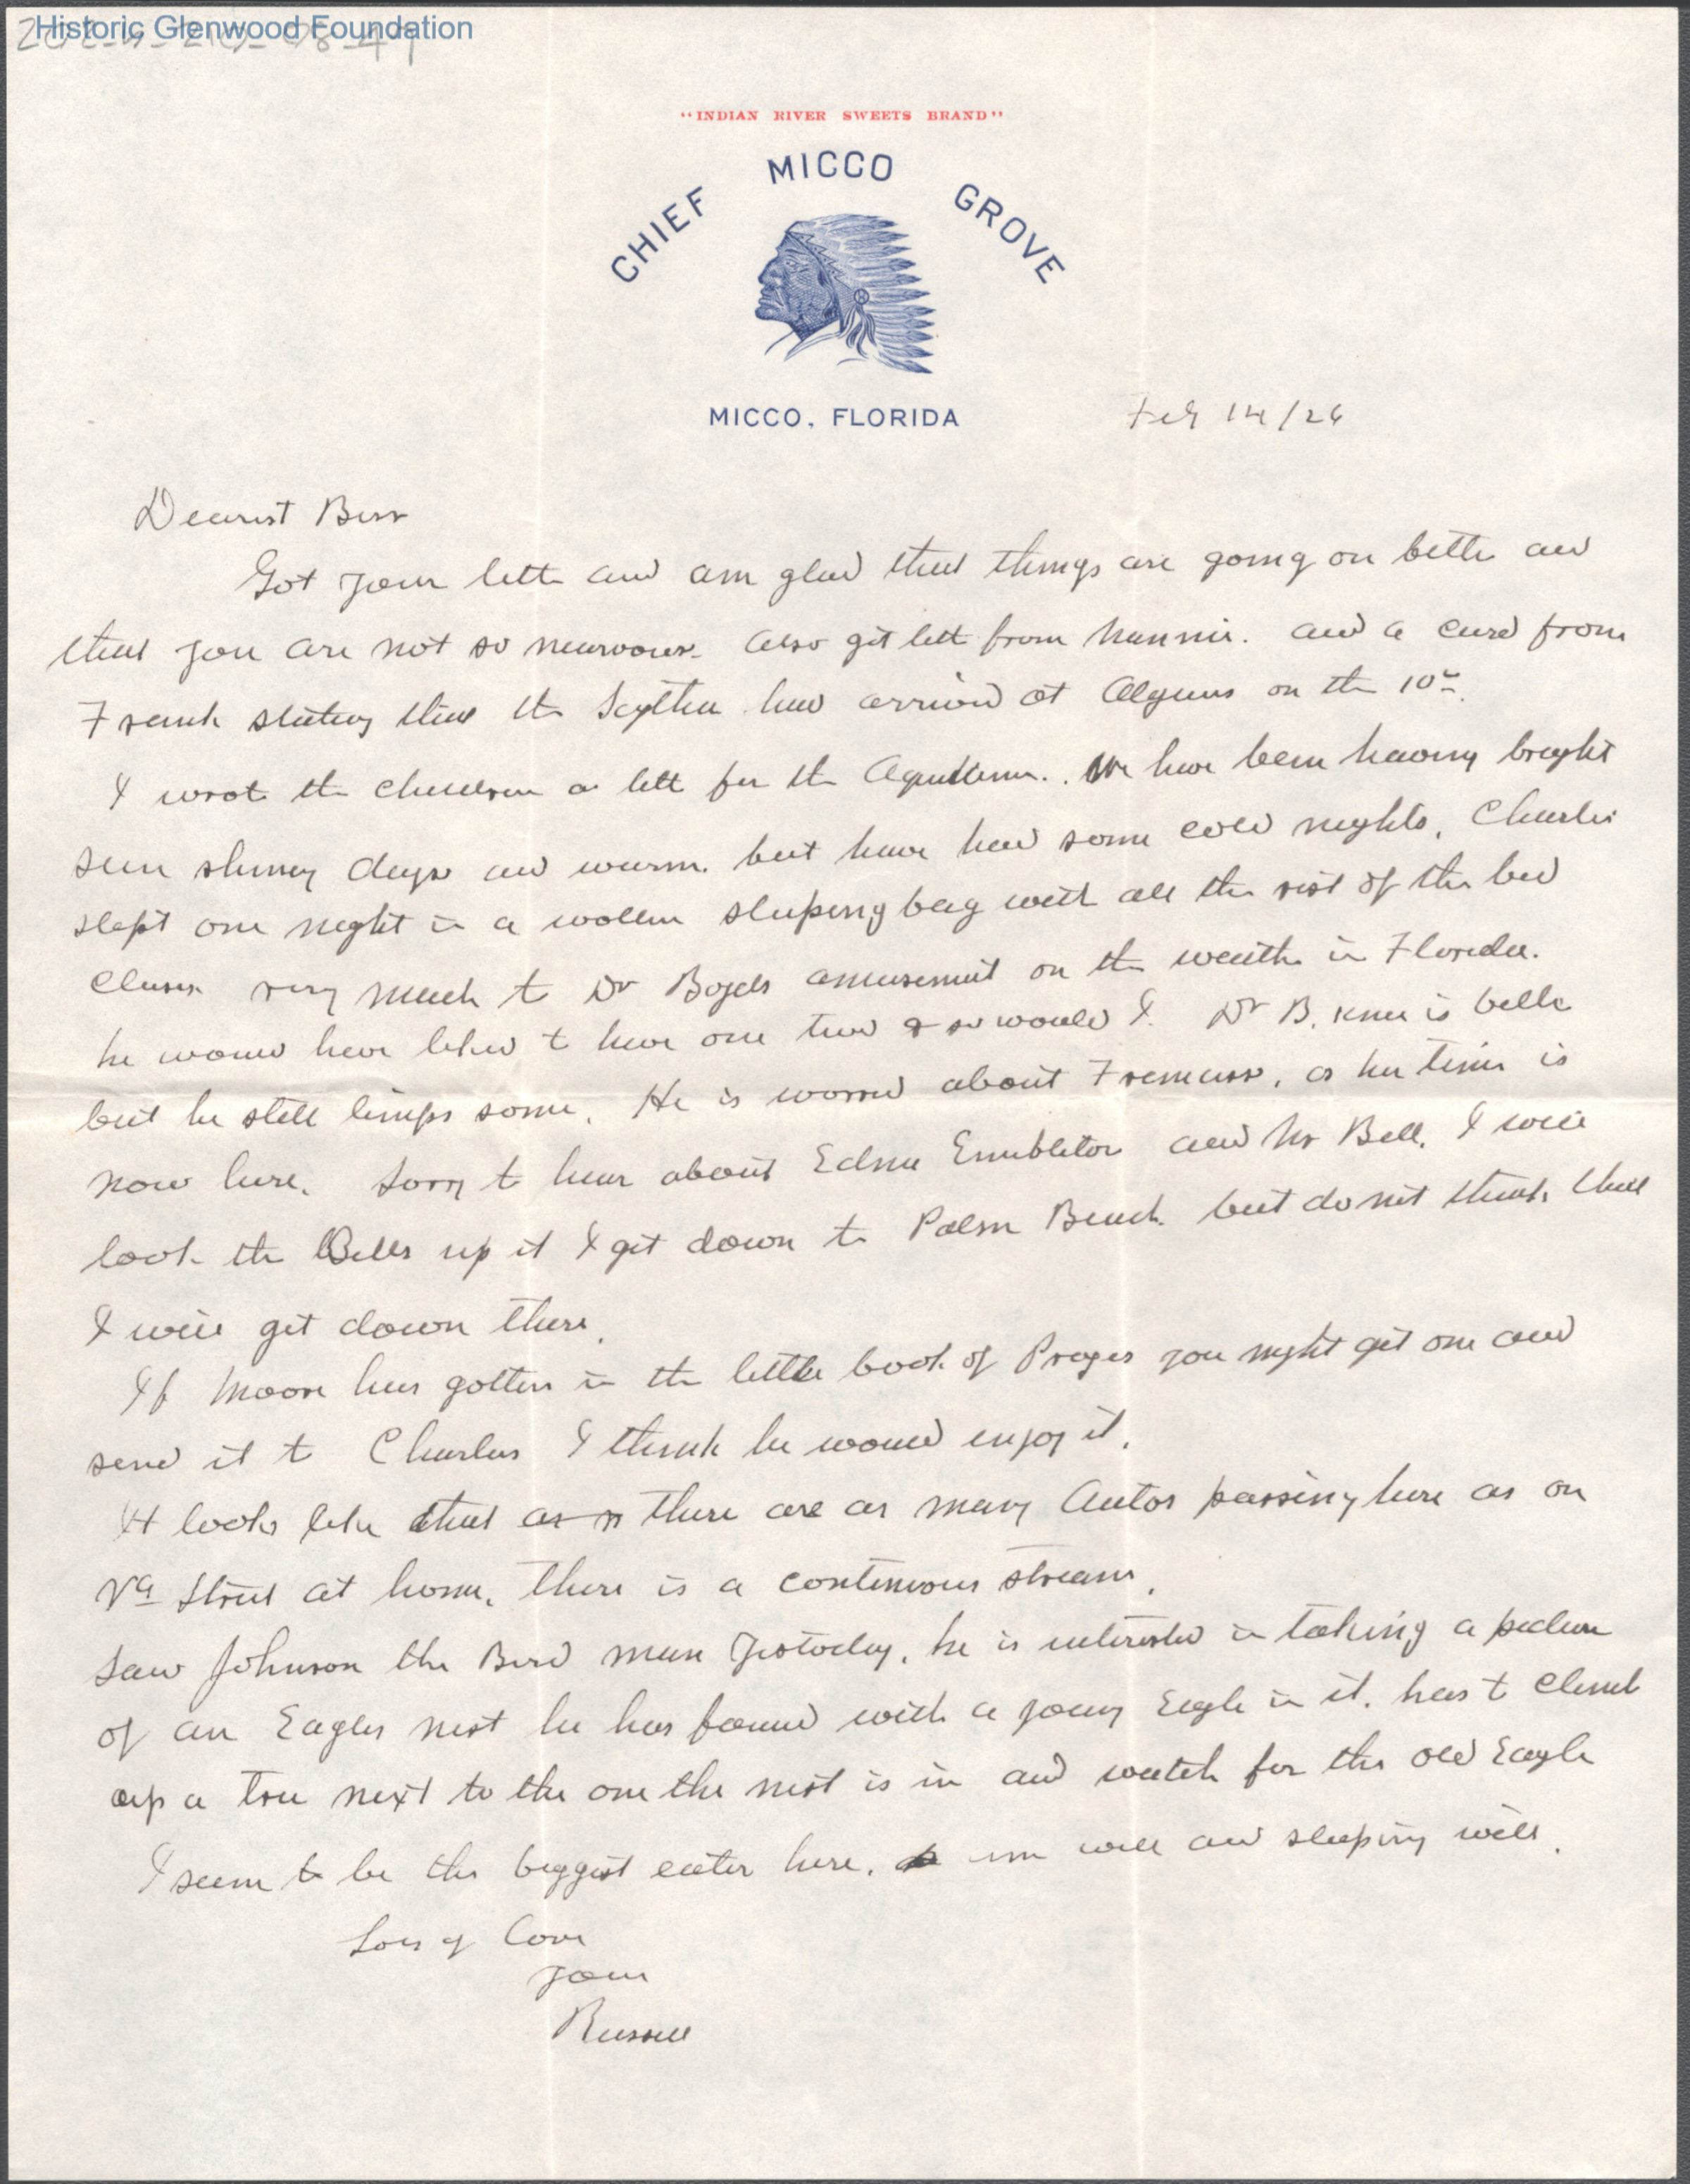 Historic Glenwood Foundation
"INDIAN RIVER SWEETS BRAND"
CHIEF MICCO GROVE
MICCO, FLORIDA
Feb 14/26
Dearest Bess
Got your lette and am glad that things are going on bette and
that you are not so nearvous. Also got lett from Nannie. and a card from
Frank stating that the Scythia had arrived at Algiers on the 10th.
I wrote the children a lett for the We have been having bright
sun shiney days and warm. but have had some cold nights, Charlie
slept one night in a wollen sleeping bag with all the rest of the bed
very much to Dr Boyds amusement on the weathe in Florida.
he would have liked to have one two & so would I. Dr B. knee is bette
but he still limps some. He is worried about as her time is
now here. Sorry to hear about Edna Embleton and Mr Bell. I will
look the Bells up if I get down to Palm Beach but do not think that
I will get down there.
If Moore has gotten in the little book of Prayers you might get one and
send it to Charles I think he would enjoy it.
It looks like that as there are as many Autos passing here as on
Va Street at home, there is a continuous stream.
Saw Johnson the Bird man yestoday, he is interested in taking a picture
of an Eagles nest he has found with a young Eagle in it. has to climb
up a tree next to the one the nest is in and watch for the old Eagle
I seem to be the biggest eater here. am well and sleeping well.
Lots of Love
Your
Russell